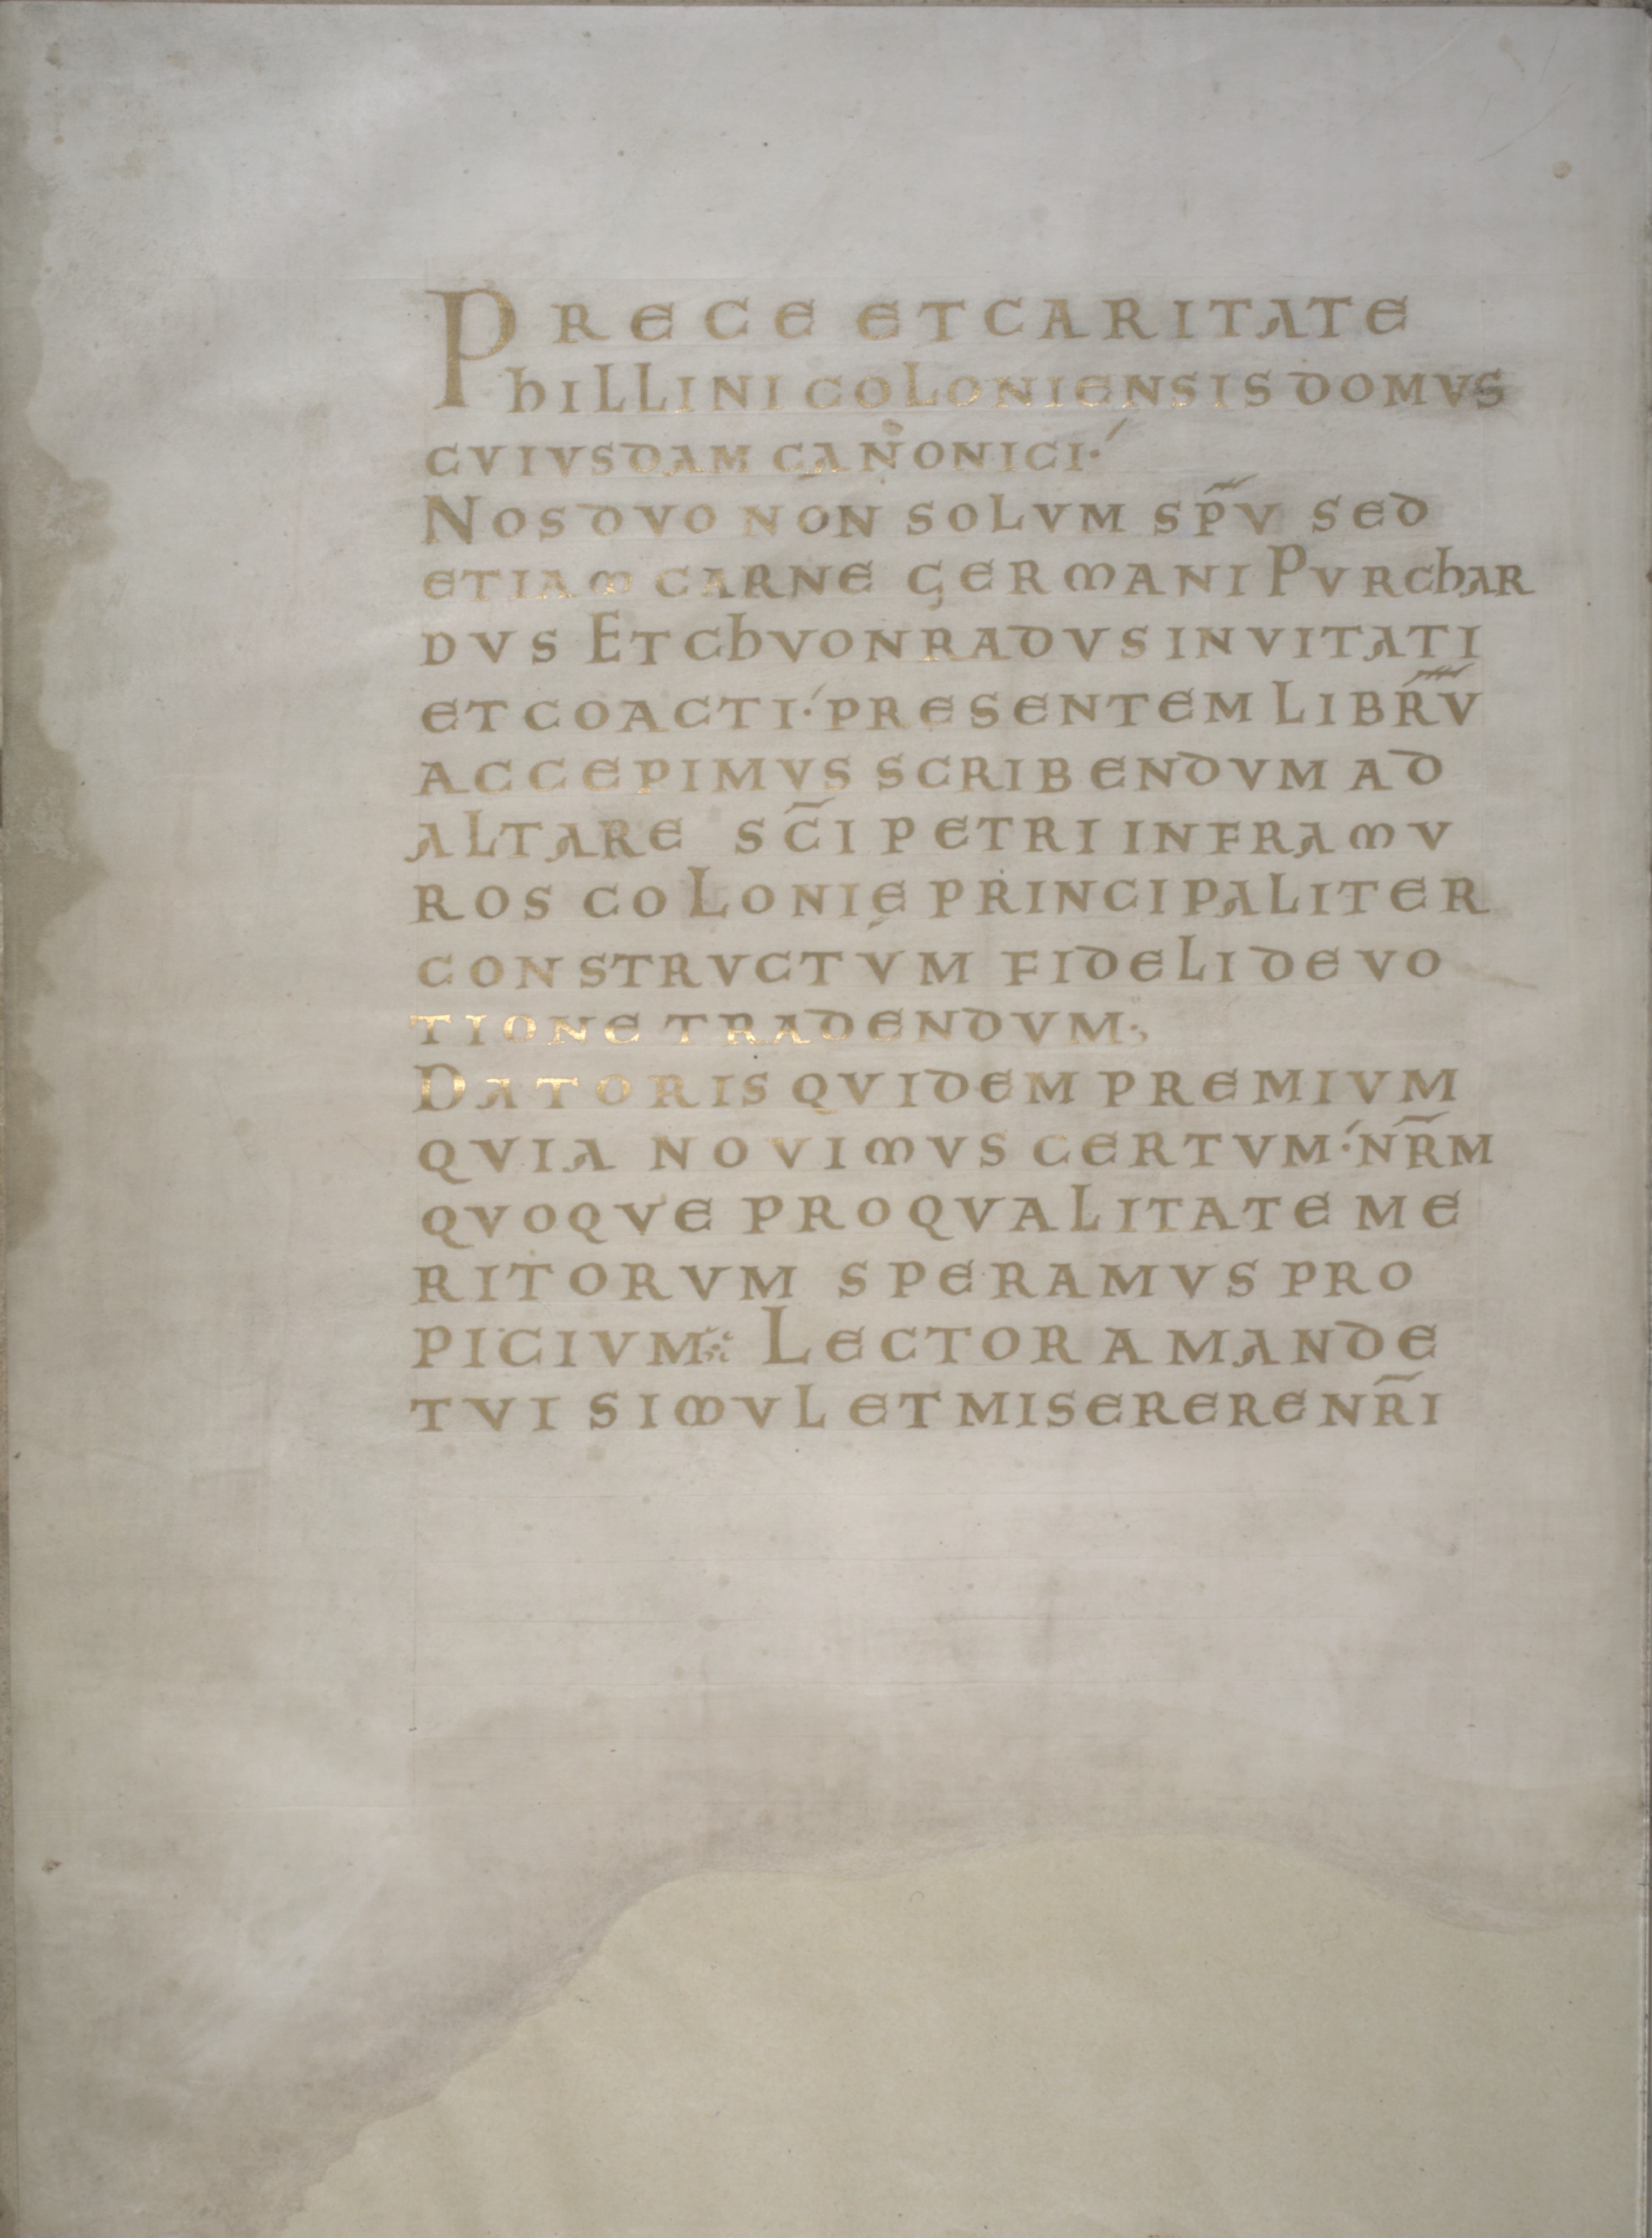 PRECE ET CARITATE
hILLINI COLONIENSIS DOMVS
CVIVSDAM CANONICI·
NOS DVO NON SOLVM SP̅V SED
ETIAM CARNE GERMANI PVRChAR
DVS ET ChVONRADVS INVITATI
ET COACTI· PRESENTEM LIBR̅V̅
ACCEPIMVS SCRIBENDVM AD
ALTARE SC̅I PETRI INFRA MV
ROS COLONIĘ PRINCIPALITER
CONSTRVCTVM FIDELI DEVO
TIONE TRADENDVM·,
DATORIS QVIDEM PREMIVM
QVIA NOVIMVS CERTVM· NR̅M
QVOQVE PRO QVALITATE ME
RITORVM SPERAMVS PRO
PICIVM LECTOR AMANDE
TVI SIMVL ET MISERERE NR̅I